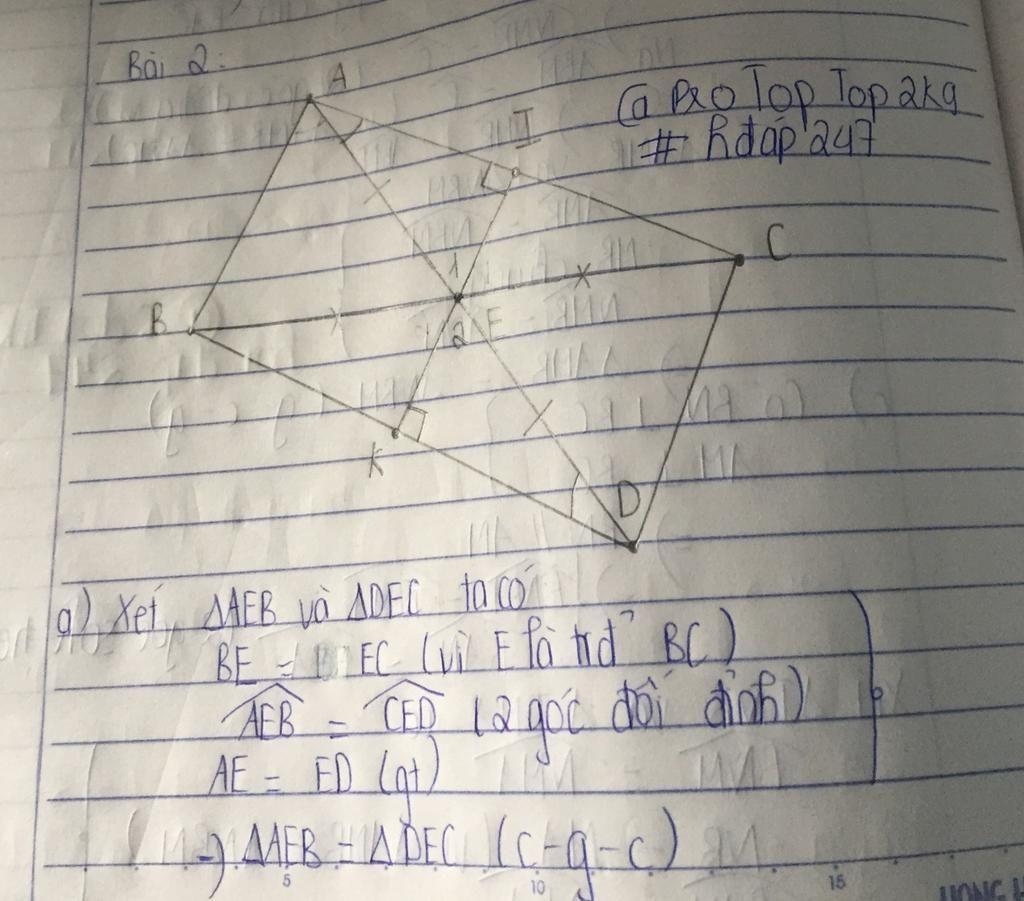 Bài 2:
@ Pro Top Top 2kg
# hđáp 247
A
I
C
1
B
2 E
K
D
a) Xét ΔAEB và ΔDEC ta có
BE = EC (vì E là trđ BC)
AEB = CED (2 góc đối đỉnh)
AE = ED (gt)
→ ΔAEB = ΔDEC (c-g-c)
5 10 15